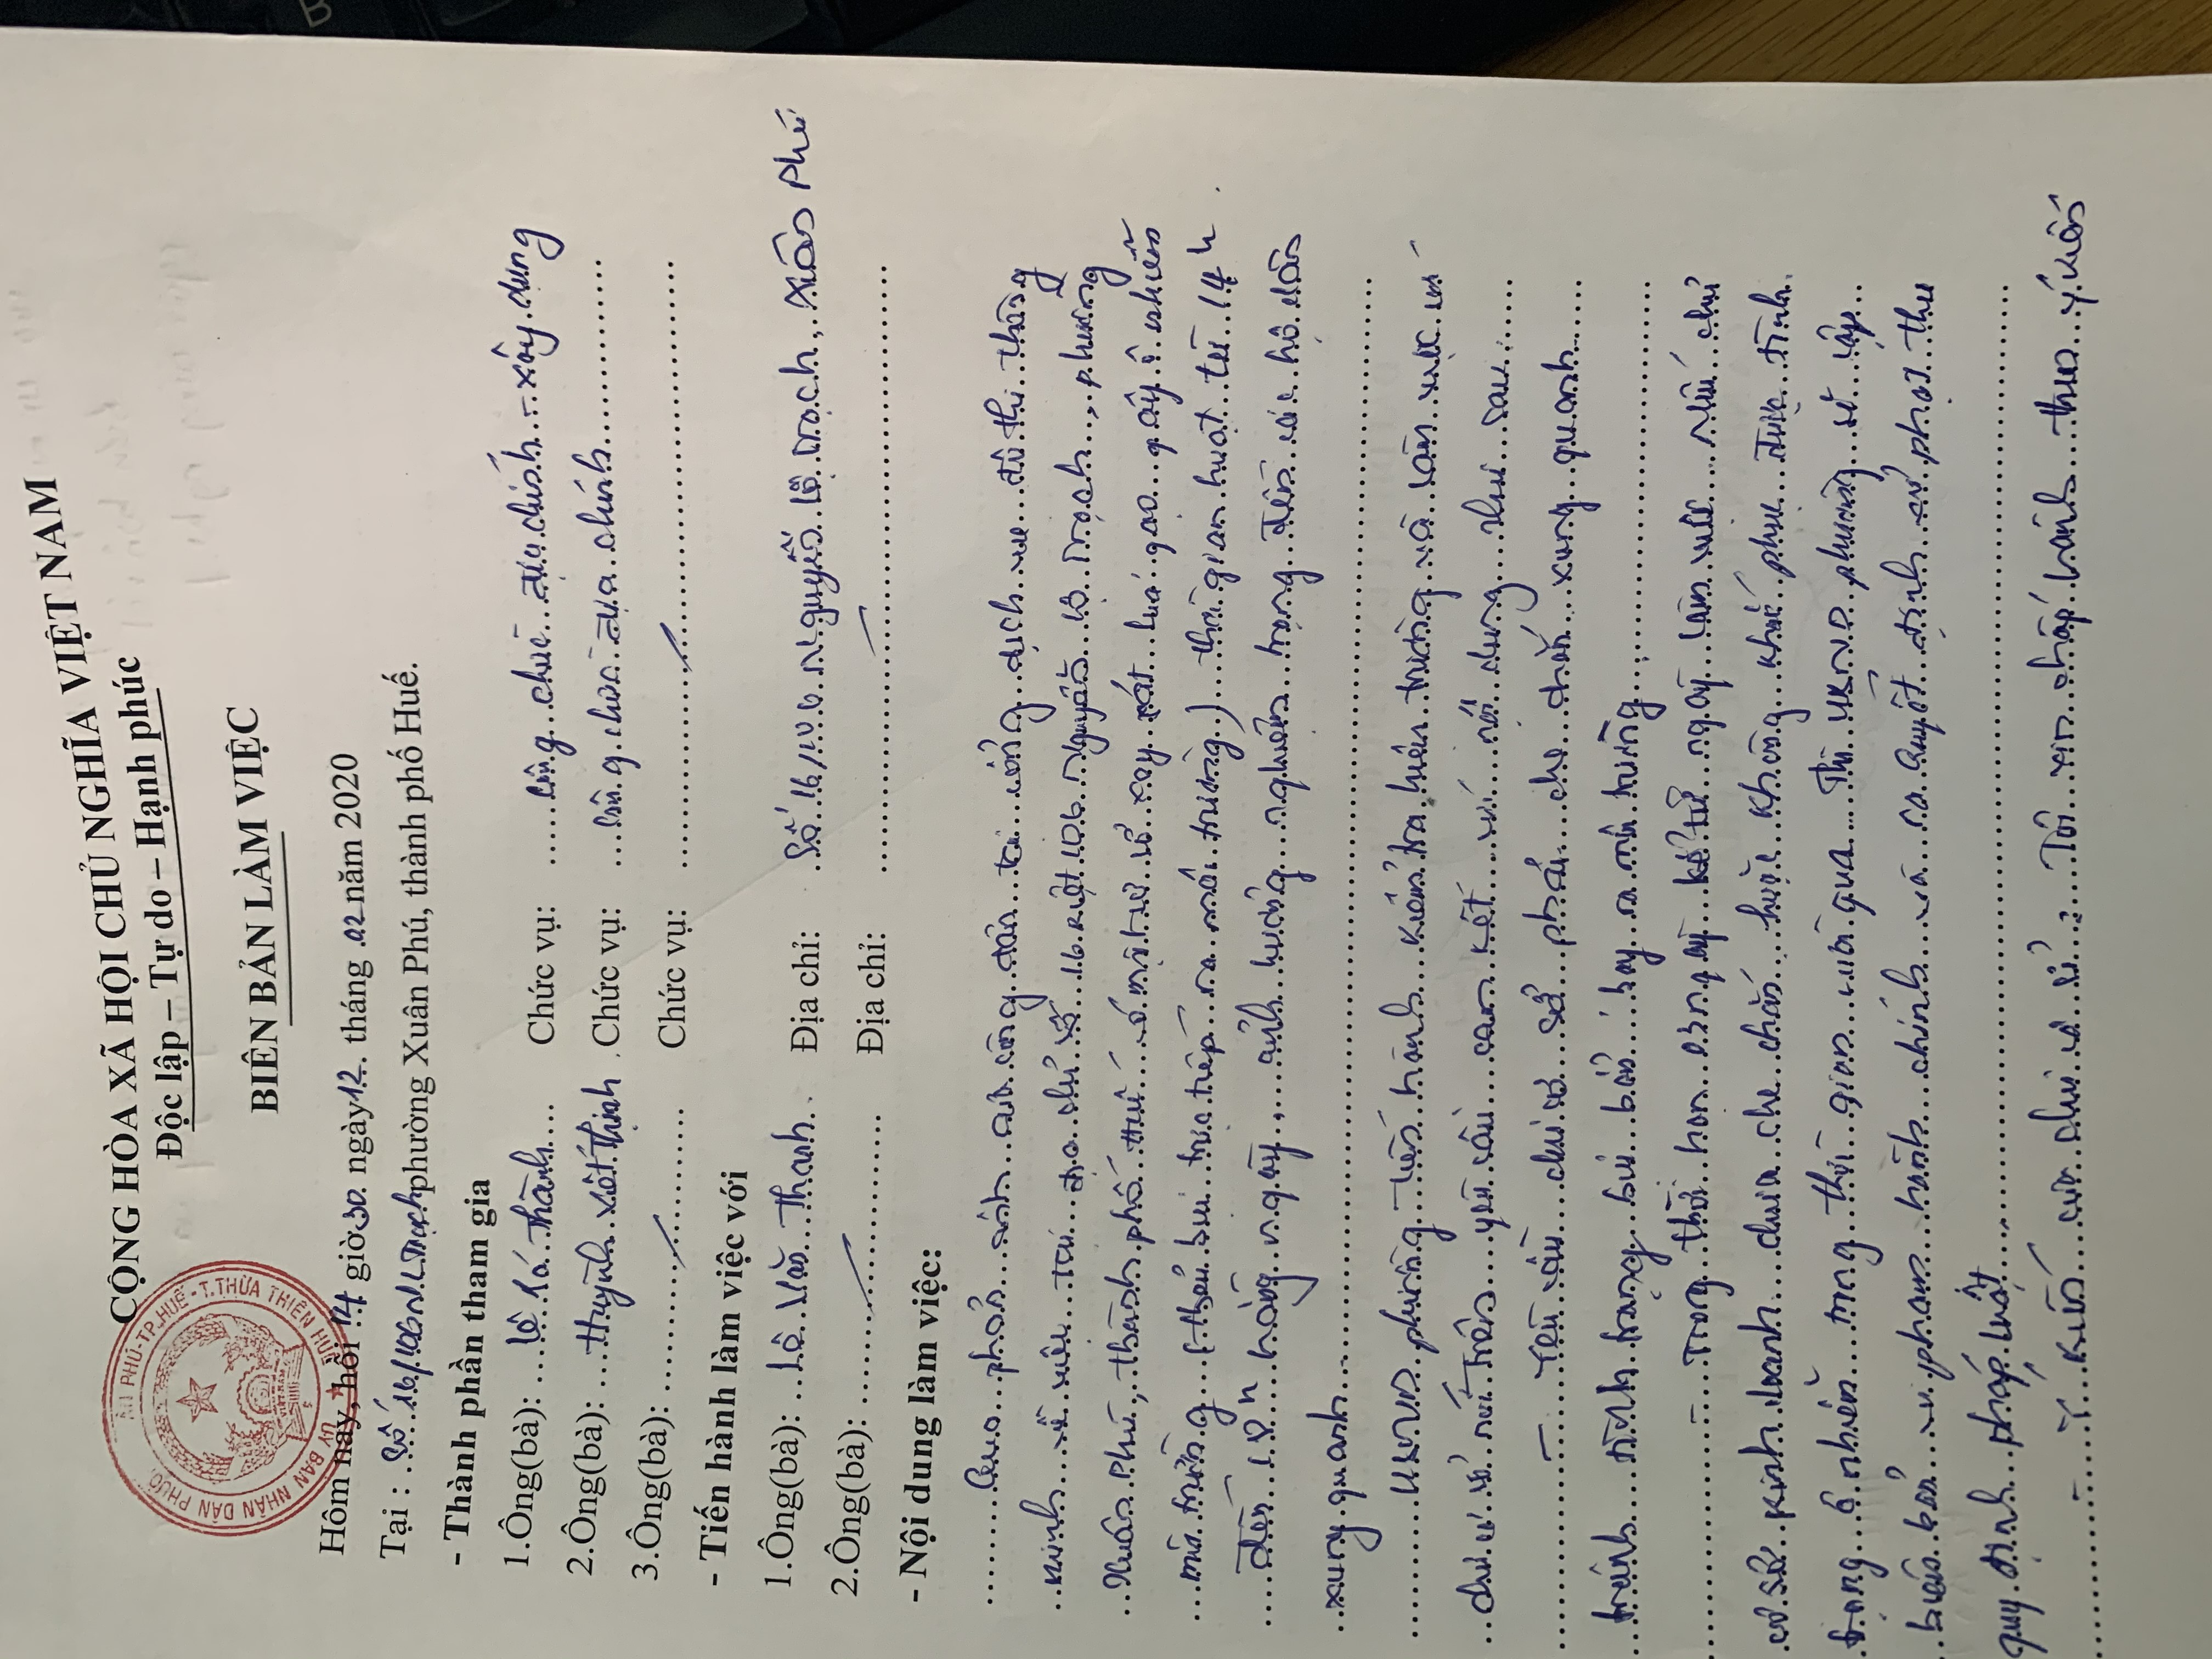 CỘNG HÒA XÃ HỘI CHỦ NGHĨA VIỆT NAM
Độc lập – Tự do – Hạnh phúc
BIÊN BẢN LÀM VIỆC
Hôm nay, hồi 14 giờ 30 ngày 12 tháng 02 năm 2020
Tại : Số 16/106 phường Xuân Phú, thành phố Huế.
- Thành phần tham gia
1.Ông(bà): Lê Bá Thành Chức vụ: Công chức địa chính - xây dựng
2.Ông(bà): Huỳnh Viết Thịnh Chức vụ: Công chức địa chính
3.Ông(bà): Chức vụ:
- Tiến hành làm việc với
1.Ông(bà): Lê Văn Thanh Địa chỉ: Số 16/106 Nguyễn Lộ Trạch, Xuân Phú
2.Ông(bà): Địa chỉ:
- Nội dung làm việc:
Qua phản ánh của công dân tại cổng dịch vụ đô thị thông
minh về việc tại địa chỉ số 16 kiệt 106 Nguyễn Lộ Trạch, phường
Xuân Phú, thành phố Huế có một cơ sở xay xát lúa gạo gây ô nhiễm
môi trường (thải bụi trực tiếp ra môi trường) thời gian hoạt từ 14h
đến 18h hằng ngày, ảnh hưởng nghiêm trọng đến các hộ dân
xung quanh
UBND phường tiến hành kiểm tra hiện trường và làm việc với
chủ cơ sở nói trên yêu cầu cam kết với nội dung như sau
- Yêu cầu chủ cơ sở phải che chắn xung quanh
tránh tình trạng bụi bẩn bay ra môi trường
- Trong thời hạn ngày kể từ ngày làm việc nếu chủ
cơ sở kinh doanh chưa che chắn hoặc không khắc phục được tình
trạng ô nhiễm trong thời gian vừa qua thì UBND phường sẽ lập
biên bản vi phạm hành chính và ra quyết định xử phạt theo
quy định pháp luật
- Ý kiến của chủ cơ sở: Tôi xin chấp hành theo ý kiến
ỦY BAN NHÂN DÂN PHƯỜNG XUÂN PHÚ-TP.HUẾ-T.THỪA THIÊN HUẾ